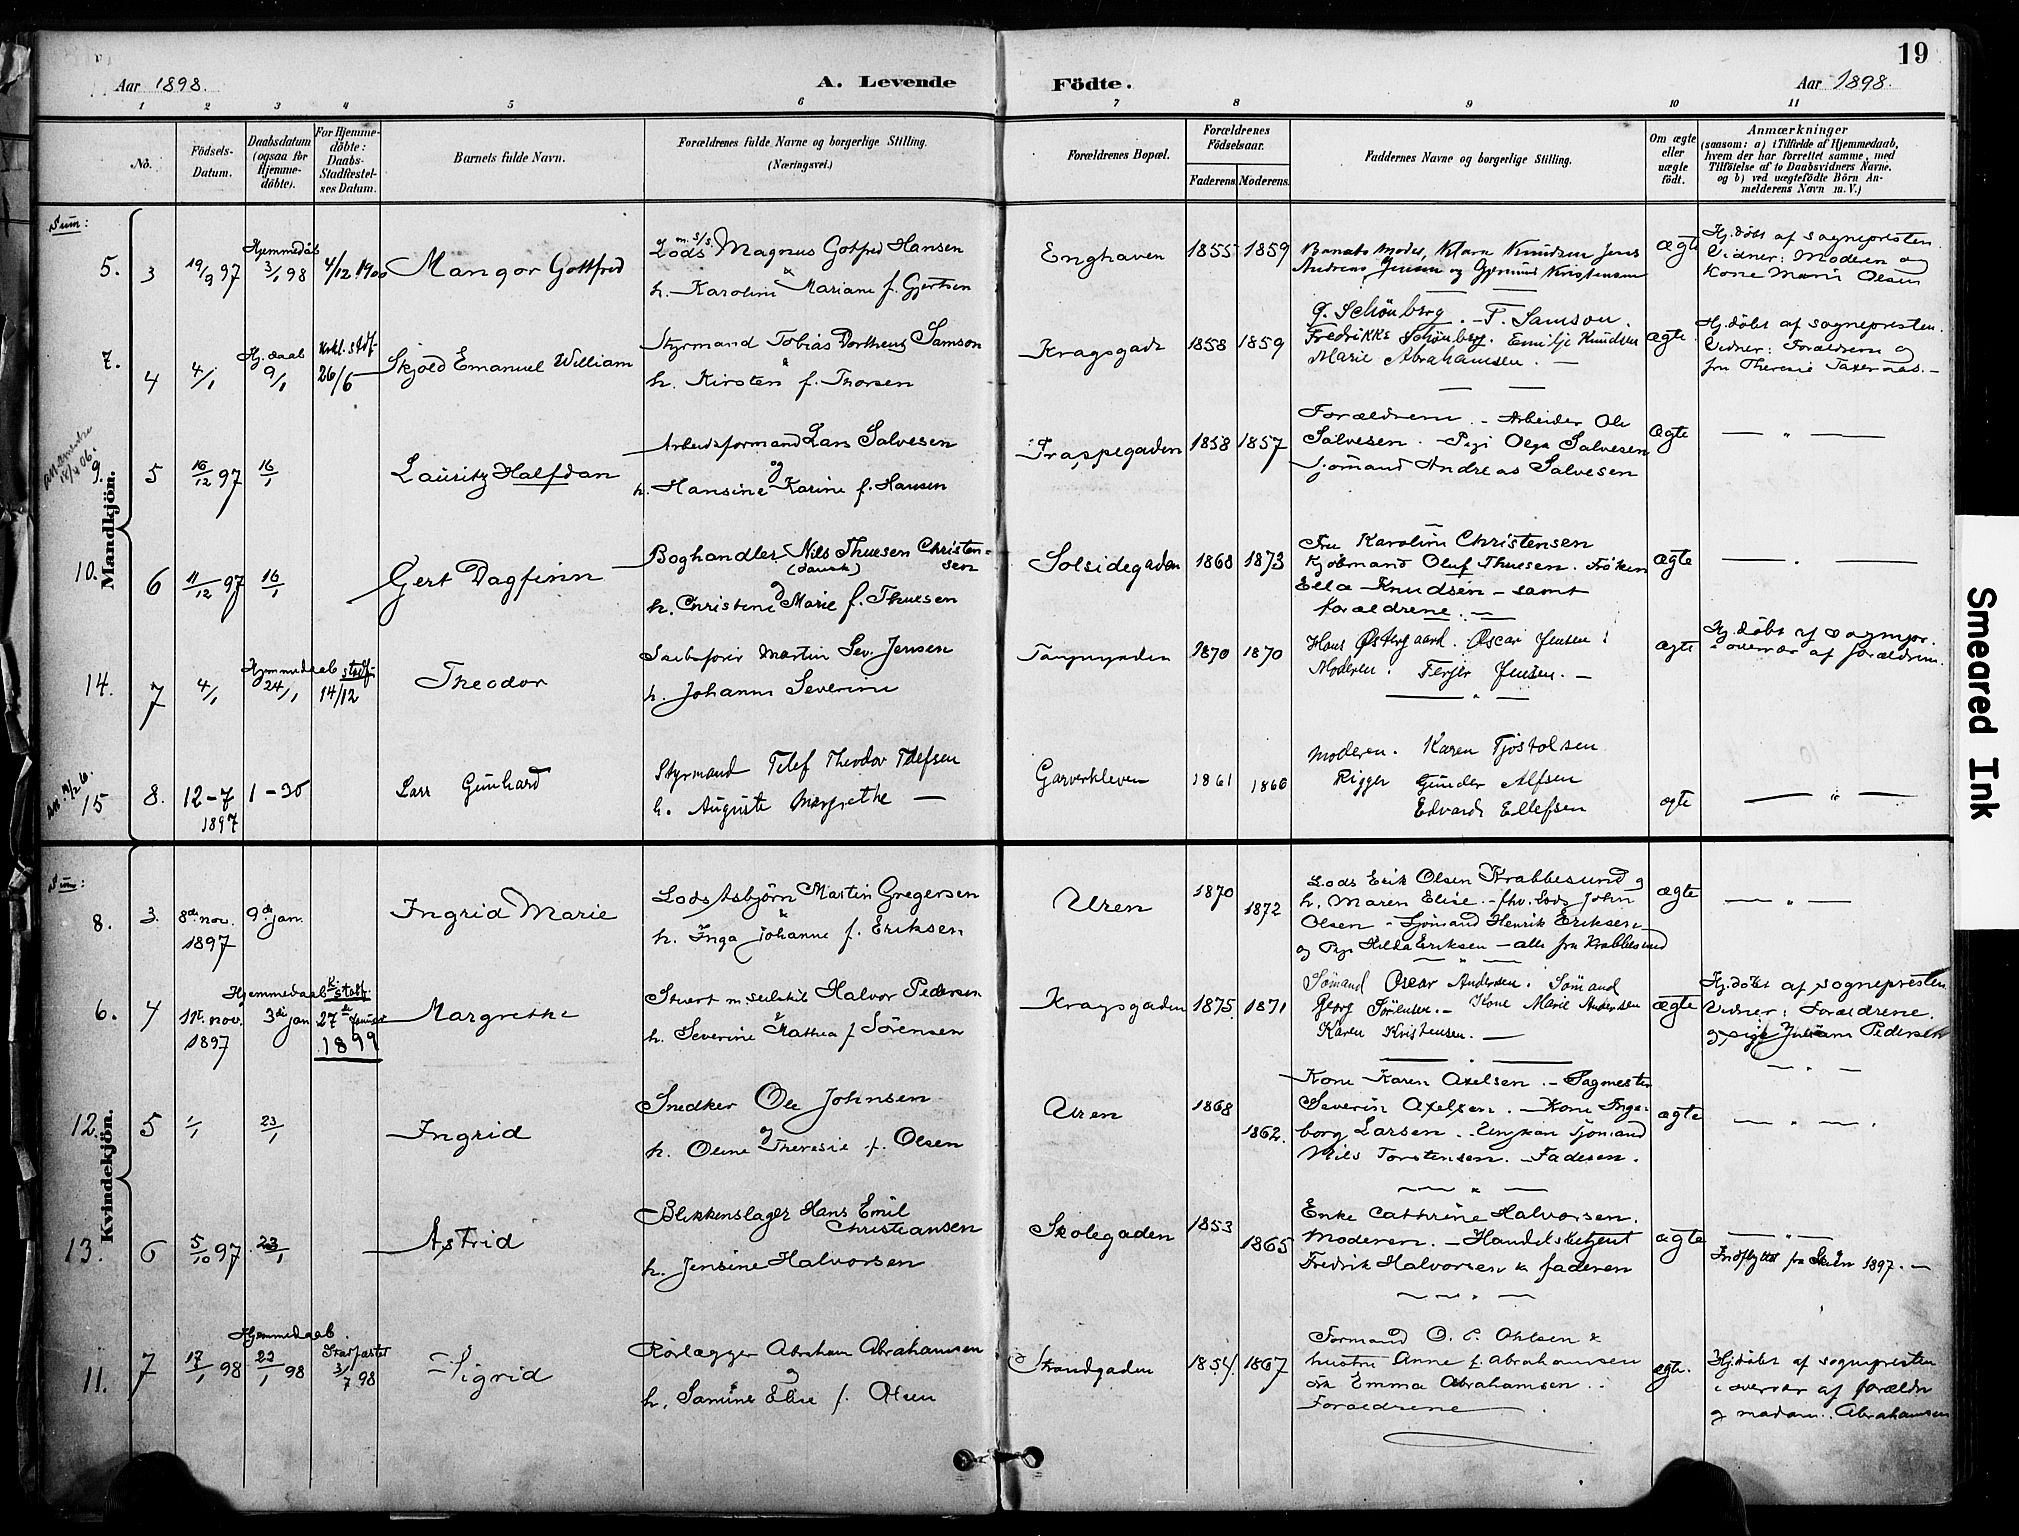 19
Aar 1898.
A. Levende Födte.
Aar 1898.
1 2 3 4 5 6 7 8 9 10 11
No.
Födsels-
Datum.
Daabsdatum
(ogsaa for
Hjemme-
döbte).
For Hjemme-
döbte:
Daabs-
Stadfæstel-
ses Datum.
Barnets fulde Navn.
Forældrenes fulde Navne og borgerlige Stilling.
(Næringsvei.)
Forældrenes Bopæl.
Forældrenes
Födselsaar.
Faderens. Moderens.
Faddernes Navne og borgerlige Stilling.
Om ægte
eller
uægte
födt.
Anmærkninger
(saasom: a) i Tilfælde af Hjemmedaab,
hvem der har forrettet samme, med
Tilföielse af to Daabsvidners Navne,
og b) ved uægtefödte Börn An-
melderens Navn m. V.)
Mandkjön.
Sum:
5. 3 19/9 97
Hjemmedåb
3/1 98
4/12 1900
Mangor Gottfred
Lods Magnus Gotfred Hansen
h. Karolini Mariane f. Gjertsen
Enghaven
1855 1859
Barnets Moder, Klara Knudsen Jens
Andreas Jensen og Gjermund Kristensen
ægte
Hj. døbt af sognepresten.
Vidner: Moderen og
Kone Maris Olsen
7. 4 4/1
Hj. daab
9/1
26/6
Skjold Emanuel William
Styrmand Tobias Dortheus Samson
&
h. Kirsten f. Thorsen
Kragsgade
1858 1859
G. Schönberg. - T. Samson.
Fredrikke Schönberg. Emilje Knudsen
Marie Abrahamsen. —
ægte
Hj. døbt af sognepresten.
Vidner: Forældrene og
fru Theresie
9. 5 16/12 97 16/1
Lauritz Halfdan
Arbeidsformand Lars Salvesen
og
h. Hansine Karine f. Hansen
Trappegaden
1858 1857
Forældrene. - Arbeider Ole
Salvesen. - Pigi Olga Salvesen
Sjömand Andreas Salvesen
ægte
— " —
10. 6 11/12 97 16/1
Gert Dagfinn
Boghandler Nils Thuesen Christen-
(dansk) sen
h. Christine Marie f. Thuesen
Solsidegaden
1868 1873
Fru Karoline Christensen
Kjöbmand Oluf Thuesen. Fröken
Ella Knudsen - samt
forældrene. —
ægte
— " —
14. 7 4/1
Hjemmedaab
24/1
stadf.
14/12
Theodor
Martin Sev. Jensen
h. Johanne Severine
1870 1870
Hans Østergaard. Oscar Jensen.
Moderen. Jensen. —
— " —
ægte
Hj. døbt af sognepr.
i overvær af forældrene.
15 8. 12-7
1897
1-30
Lars Gunhard
Styrmand Tellef Theodor Tellefsen
h. Auguste Margrethe —
Garverkleven
1861 1866
Moderen. Karen Tjostolsen
Rigger Gunder Alfsen
Edvard Ellefsen
ægte
— " —
Kvindekjön.
Sum:
8. 3. 8de nov.
1897
9de jan.
Ingrid Marie
Lods Asbjörn Martin Gregersen
&
h. Inga Johanne f. Eriksen
Uren
1870 1872
Lods Erik Olsen Krabbesund og
h. Maren Elise. - fhv. Lods John
Olsen - Sjömand Henrik Eriksen -
og Pige Hilda Eriksen - alle fra Krabbesund
ægte
— " —
6. 4 1ste nov.
1897
Hjemmedaab
3die jan
stadf.
27de
1899
Margrethe
Stuert Halvor Pedersen
&
h. Severine Mathea f. Sörensen
Kragsgaden
1875. 1871
Sømand Oscar Andersen. Sømand
Georg Sørensen. - Kone Marie Andersen
Karen Kristensen. —
ægte
Hj. døbt af sognepresten
Vidner: Forældrene.
og pige Juliane Pedersen
12. 5 1/1 23/1
Ingrid
Snedker Ole Johnsen
og
h. Oline Theresie f. Olsen
Uren
1868 1862.
Kone Karen Axelsen. - Sagmester
Severin Axelsen. - Kone Inge-
borg Larsen. - Ungkar Sjömand
Nils Torstensen. - Faderen.
ægte
— " —
13. 6 5/10 97 23/1
Astrid
Blikkenslager Hans Emil
Christiansen
h. Jensine Halvorsen
Skolegaden
1853 1865
Enke Cathrine Halvorsen.
Moderen. - Handelsbetjent
Fredrik Halvorsen & faderen
ægte
— " —
Indflyttet fra Skien 1897. —
11. 7 17/1 98
Hjemmedaab.
23/1 98
Stadfæstet
3/7 98
Sigrid
Rörlægger Abraham Abrahamsen
og
h. Samine Elise f. Olsen
Strandgaden
1854 1867
Formand O. P. Ohlsen &
hustru Anne f. Abrahamsen
Emma Abrahamsen.
Forældrene
ægte.
Hj. döbt af sognepresten
i overvær af forældr.
og madam. Abrahamsen
Smeared Ink